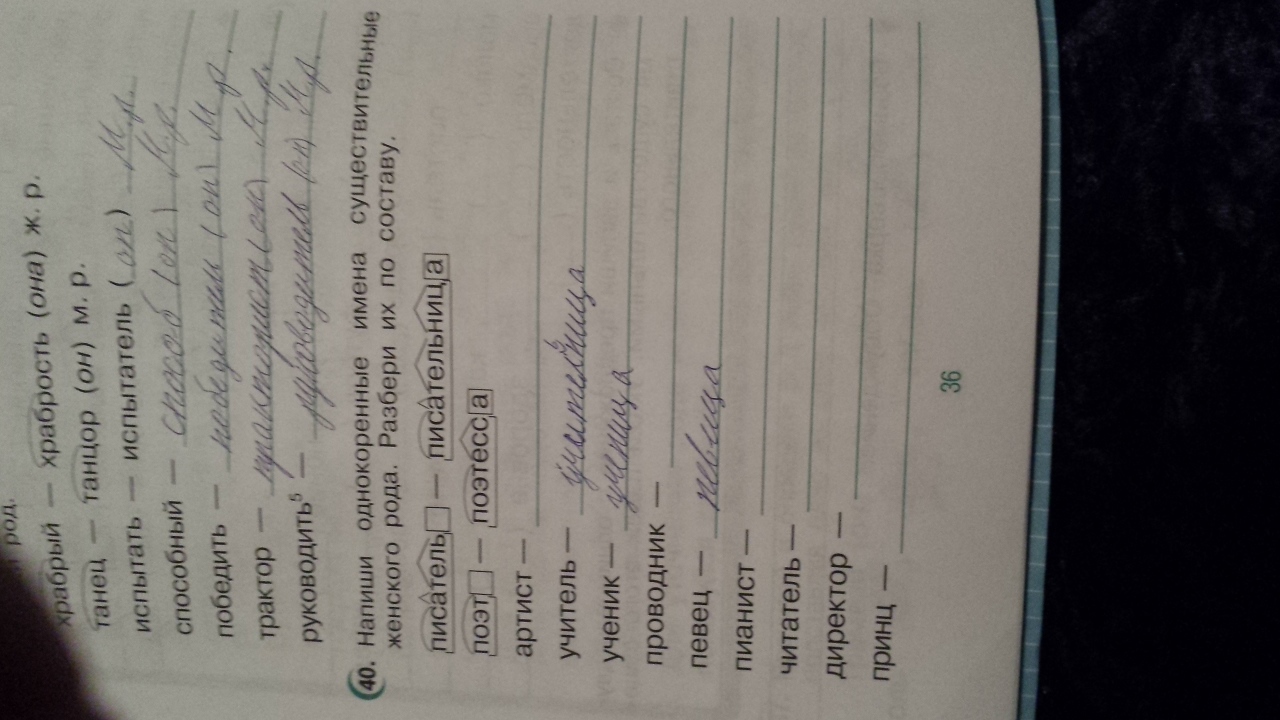 род.
храбрый — храбрость (она) ж. р.
танец — танцор (он) м. р.
испытать — испытатель (он) М.р.
способный — способ (он) М.р.
победить — (он) М р.
трактор — тракторист (он) М.р.
руководить⁵ — руководитель (он) М.р.
40. Напиши однокоренные имена существительные
женского рода. Разбери их по составу.
писатель — писательница
поэт — поэтесса
артист —
учитель — учительница
ученик — ученица
проводник —
певец — певица
пианист —
читатель —
директор —
принц —
36